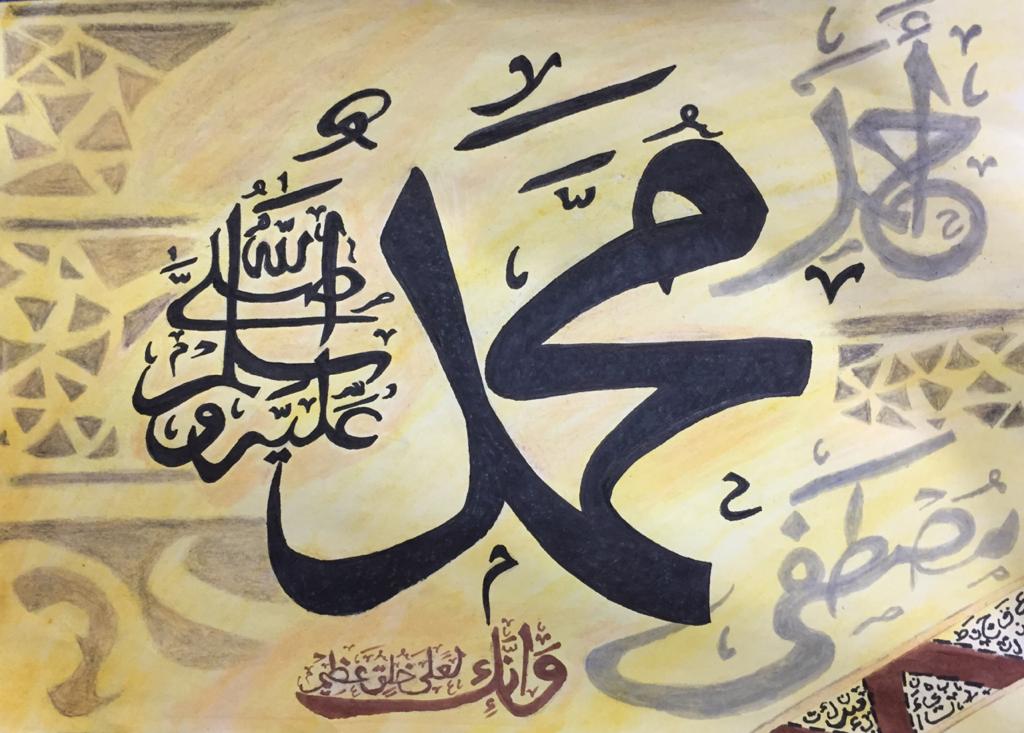 أَحْمَد
مُحَمَّد
صَلَّى اللهُ عَلَيْهِ وَسَلَّم
مُصْطَفَى
وَإِنَّكَ لَعَلَى خُلُقٍ عَظِيم